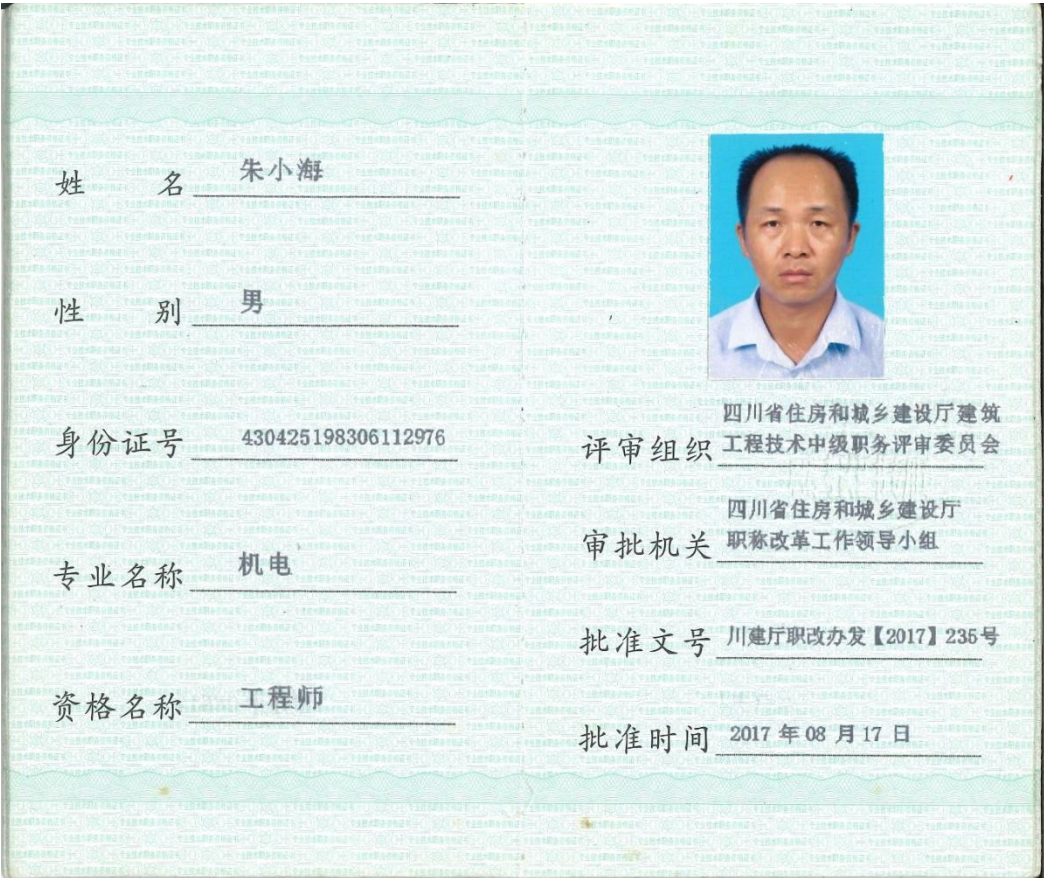 姓 名 朱小海
性 别 男
身份证号 430425198306112976
专业名称 机电
资格名称 工程师
评审组织 四川省住房和城乡建设厅建筑
工程技术中级职务评审委员会
审批机关 四川省住房和城乡建设厅
职称改革工作领导小组
批准文号 川建厅职改办发【2017】235号
批准时间 2017 年 08 月 17 日